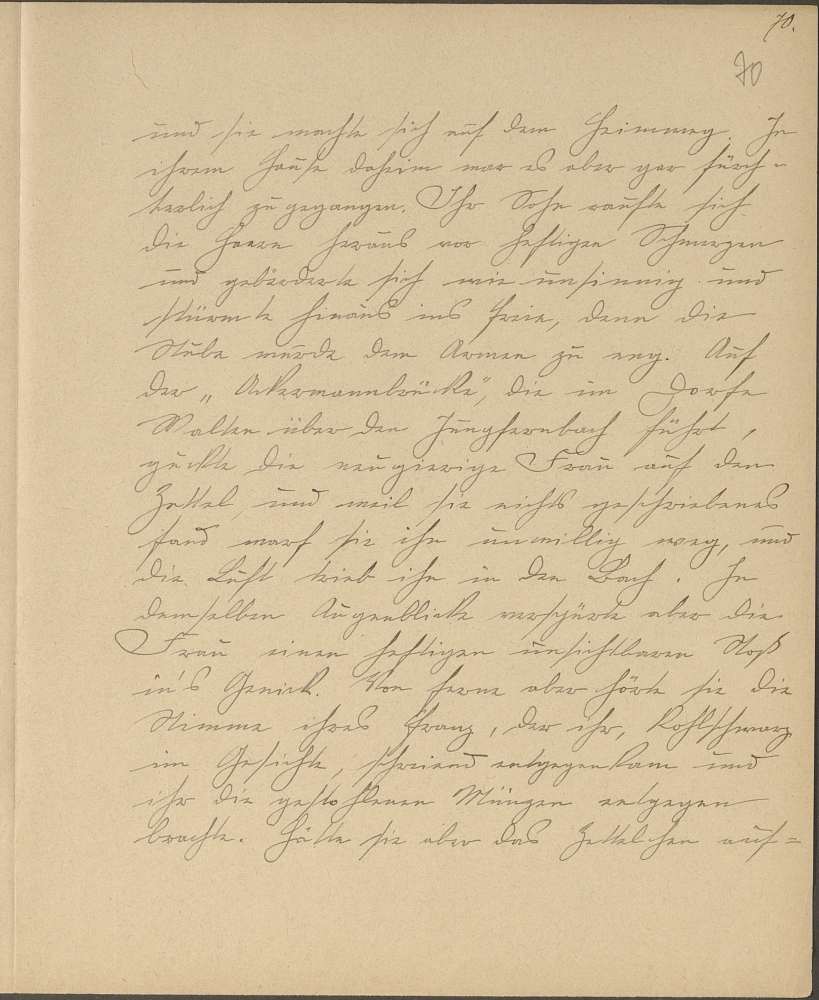 70.
70
und sie machte sich auf dem Heimweg. In
ihrem Hause daheim war es aber gar fürch-
terlich zugegangen. Ihr Sohn raufte sich
die Haare heraus vor heftigen Schmerzen
und gebärderte sich wie unsinnig und
stürmte hinaus ins Freie, denn die
Stube wurde dem Armen zu eng. Auf
der „Ackermannbrücke", die im Dorfe
Walten über den Jungfernbach führt,
guckte die neugierige Frau auf den
Zettel, und weil sie nichts geschriebenes
fand warf sie ihn unwillig weg, und
die Luft trieb ihn in den Bach. In
demselben Augenblicke verspürte aber die
Frau einen heftigen unsichtbaren Stoß
in's Genick. Von ferne aber hörte sie die
Stimme ihres Franz, der ihr, kohlschwarz
im Gesichte, schreiend entgegenkam und
ihr die gestohlenen Münzen entgegen
brachte. Hätte sie aber das Zettelchen auf=